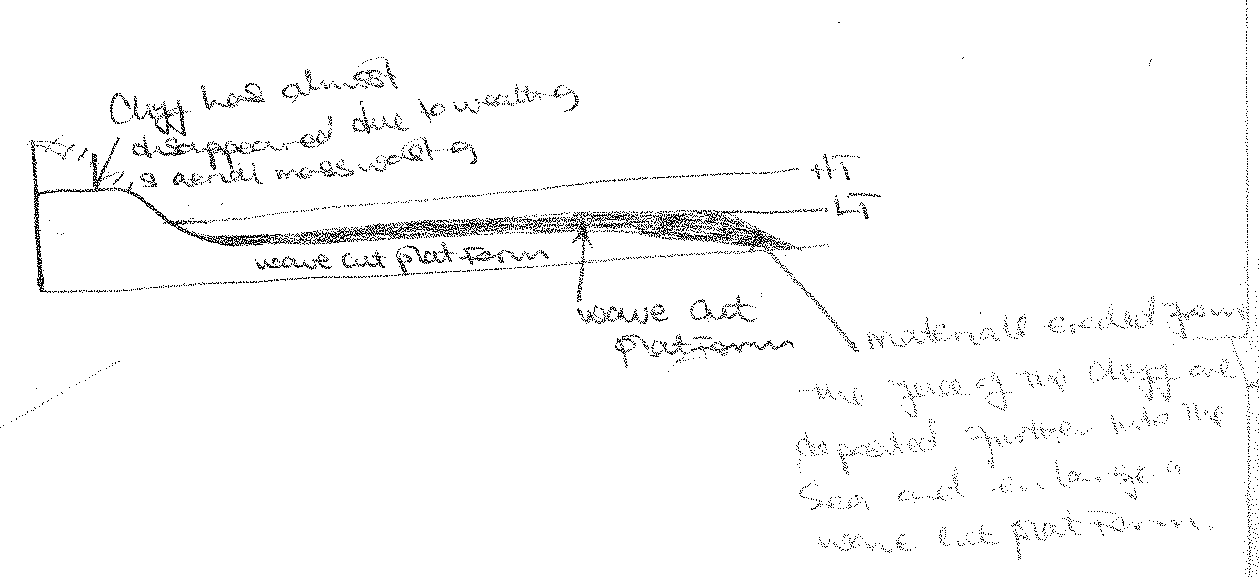 Cliff has almost
disappeared due to weathing
& aerial mass wasting
HT
LT
wave cut platform
wave cut
platform
materials eroded from
the face of the cliff are
deposited further into the
Sea and enlarge a
wave cut platform.